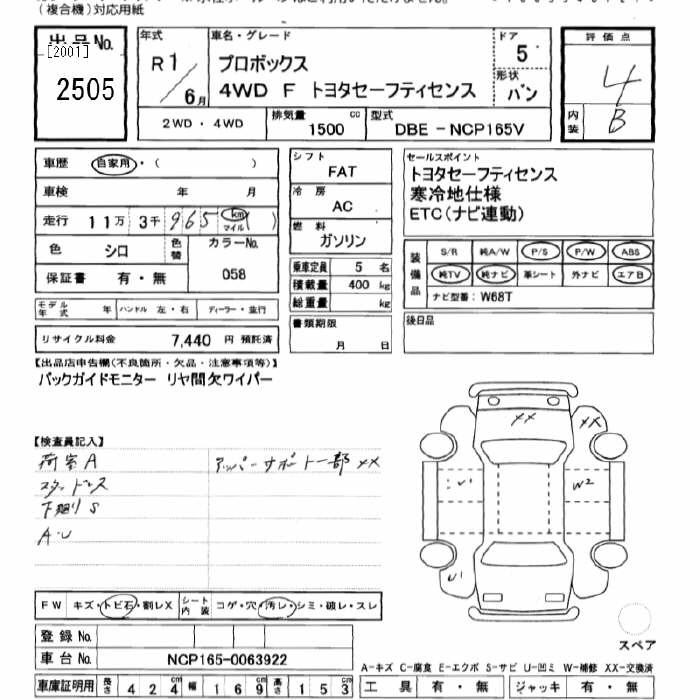 (複合機)対応用紙
出品No.
[2001]
2505
年式
R1/6月
車名・グレード
プロボックス
4WD F トヨタセーフティセンス
ドア
5
形状
バン
評価点
4
内装
B
2WD・4WD
排気量 1500 cc
型式 DBE－NCP165V
車歴 自家用・( )
車検 年 月
走行 11万 3千 965 km マイル ( )
色 シロ 色替 カラーNo. 058
保証書 有・無
モデル年式 年 ハンドル 左・右 ディーラー・並行
リサイクル料金 7,440 円 預託済
シフト
FAT
冷房
AC
燃料
ガソリン
乗車定員 5 名
積載量 400 kg
総重量 kg
書類期限
月 日
セールスポイント
トヨタセーフティセンス
寒冷地仕様
ETC(ナビ連動)
装備品
S/R 純A/W P/S P/W ABS
純TV 純ナビ 革シート 外ナビ エアB
ナビ型番: W68T
後日品
【出品店申告欄(不良箇所・欠品・注意事項等)】
バックガイドモニター リヤ間欠ワイパー
【検査員記入】
荷室A アッパーサポート一部XX
スタッドレス
下廻りS
A・U
XX
XX
U1
W2
U1
FW キズ・トビ石・割レX シート内装 コゲ・穴・汚レ・シミ・破レ・スレ
登録No.
車台No. NCP165-0063922
車庫証明用 長さ 424 cm 幅 169 cm 高さ 153 cm
スペア
A－キズ C－腐食 E－エクボ S－サビ U－凹ミ W－補修 XX－交換済
工具 有・無 ジャッキ 有・無